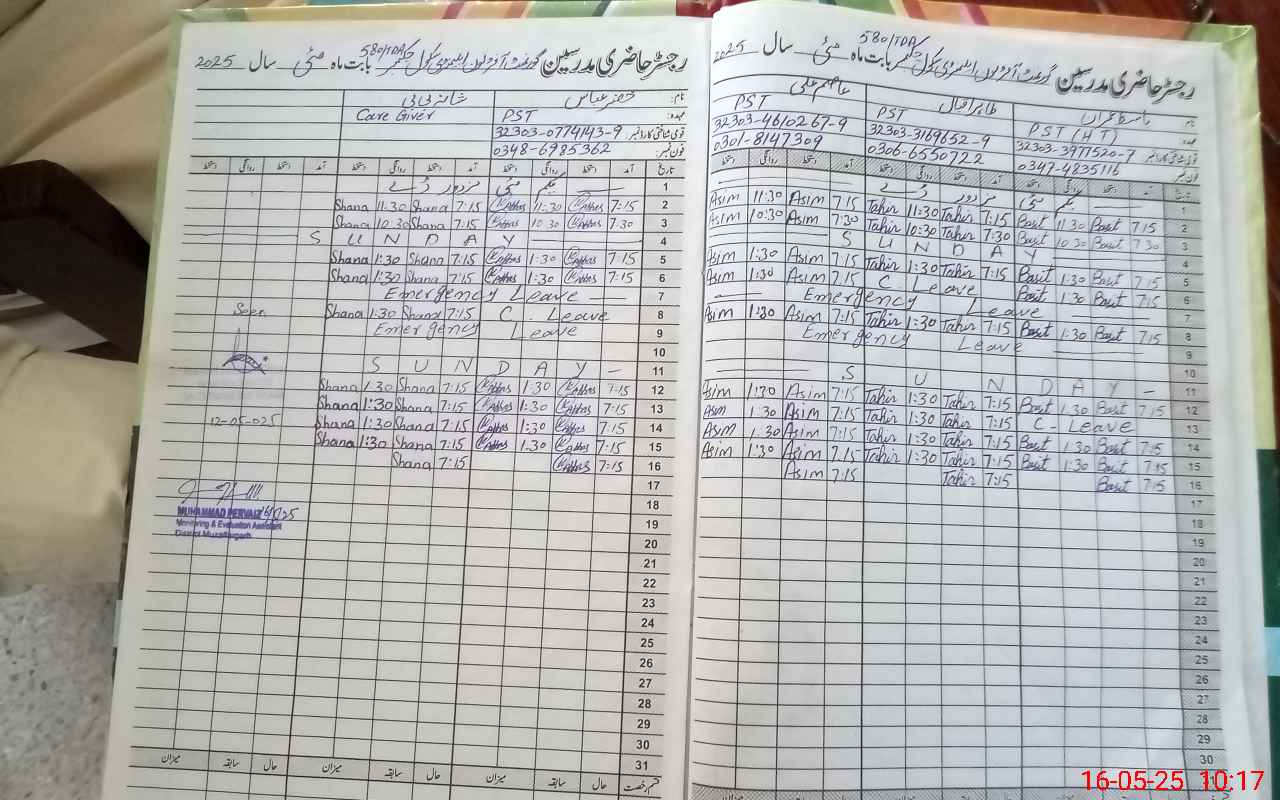 رجسٹر حاضری مدرسین گورنمنٹ آف بوائز ایلیمنٹری سکول چک نمبر 580/TDA بابت ماہ مئی سال 2025
نام: خضر عباس شانہ بی بی
عہدہ: PST Care Giver
قومی شناختی کارڈ نمبر: 32303-0774143-9
فون نمبر: 0348-6985362
تاریخ آمد دستخط روانگی دستخط آمد دستخط روانگی دستخط آمد دستخط روانگی دستخط
1 یکم مئی مزدور ڈے
2 7:15 Abbas 11:30 Abbas 7:15 Shana 11:30 Shana
3 7:30 Abbas 10:30 Abbas 7:15 Shana 10:30 Shana
4 S U N D A Y
5 7:15 Abbas 1:30 Abbas 7:15 Shana 1:30 Shana
6 7:15 Abbas 1:30 Abbas 7:15 Shana 1:30 Shana
7 Emergency Leave
8 C. Leave 7:15 Shana 1:30 Shana
Seen
9 Emergency Leave
10
11 S U N D A Y
12 7:15 Abbas 1:30 Abbas 7:15 Shana 1:30 Shana
13 7:15 Abbas 1:30 Abbas 7:15 Shana 1:30 Shana
14 7:15 Abbas 1:30 Abbas 7:15 Shana 1:30 Shana
12-05-025
15 7:15 Abbas 1:30 Abbas 7:15 Shana 1:30 Shana
16 7:15 Abbas 7:15 Shana
17
18
MUHAMMAD PERVAIZ
19
Monitoring & Evaluation Assistant
District Muzaffargarh
20
21
22
23
24
25
26
27
28
29
30
31
قسم رخصت حال سابقہ میزان حال سابقہ میزان حال سابقہ میزان
رجسٹر حاضری مدرسین گورنمنٹ آف بوائز ایلیمنٹری سکول چک نمبر 580/TDA بابت ماہ مئی سال 2025
نام باسط عمران طاہر اقبال عاصم علی
عہدہ PST (HT) PST PST
قومی شناختی کارڈ نمبر 32303-3977520-7 32303-3169652-9 32303-4610267-9
فون نمبر 0347-4835116 0306-6550722 0301-8147309
تاریخ آمد دستخط روانگی دستخط آمد دستخط روانگی دستخط آمد دستخط روانگی دستخط
1 یکم مئی مزدور ڈے
2 7:15 Basit 11:30 Basit 7:15 Tahir 11:30 Tahir 7:15 Asim 11:30 Asim
3 7:30 Basit 10:30 Basit 7:30 Tahir 10:30 Tahir 7:30 Asim 10:30 Asim
4 S U N D A Y
5 7:15 Basit 1:30 Basit 7:15 Tahir 1:30 Tahir 7:15 Asim 1:30 Asim
6 7:15 Basit 1:30 Basit C. Leave 7:15 Asim 1:30 Asim
7 Emergency Leave
8 7:15 Basit 1:30 Basit 7:15 Tahir 1:30 Tahir 7:15 Asim 1:30 Asim
9 Emergency Leave
10
11 S U N D A Y
12 7:15 Basit 1:30 Basit 7:15 Tahir 1:30 Tahir 7:15 Asim 1:30 Asim
13 C- Leave 7:15 Tahir 1:30 Tahir 7:15 Asim 1:30 Asim
14 7:15 Basit 1:30 Basit 7:15 Tahir 1:30 Tahir 7:15 Asim 1:30 Asim
15 7:15 Basit 1:30 Basit 7:15 Tahir 1:30 Tahir 7:15 Asim 1:30 Asim
16 7:15 Basit 7:15 Tahir 7:15 Asim
17
18
19
20
21
22
23
24
25
26
27
28
29
30
16-05-25 10:17